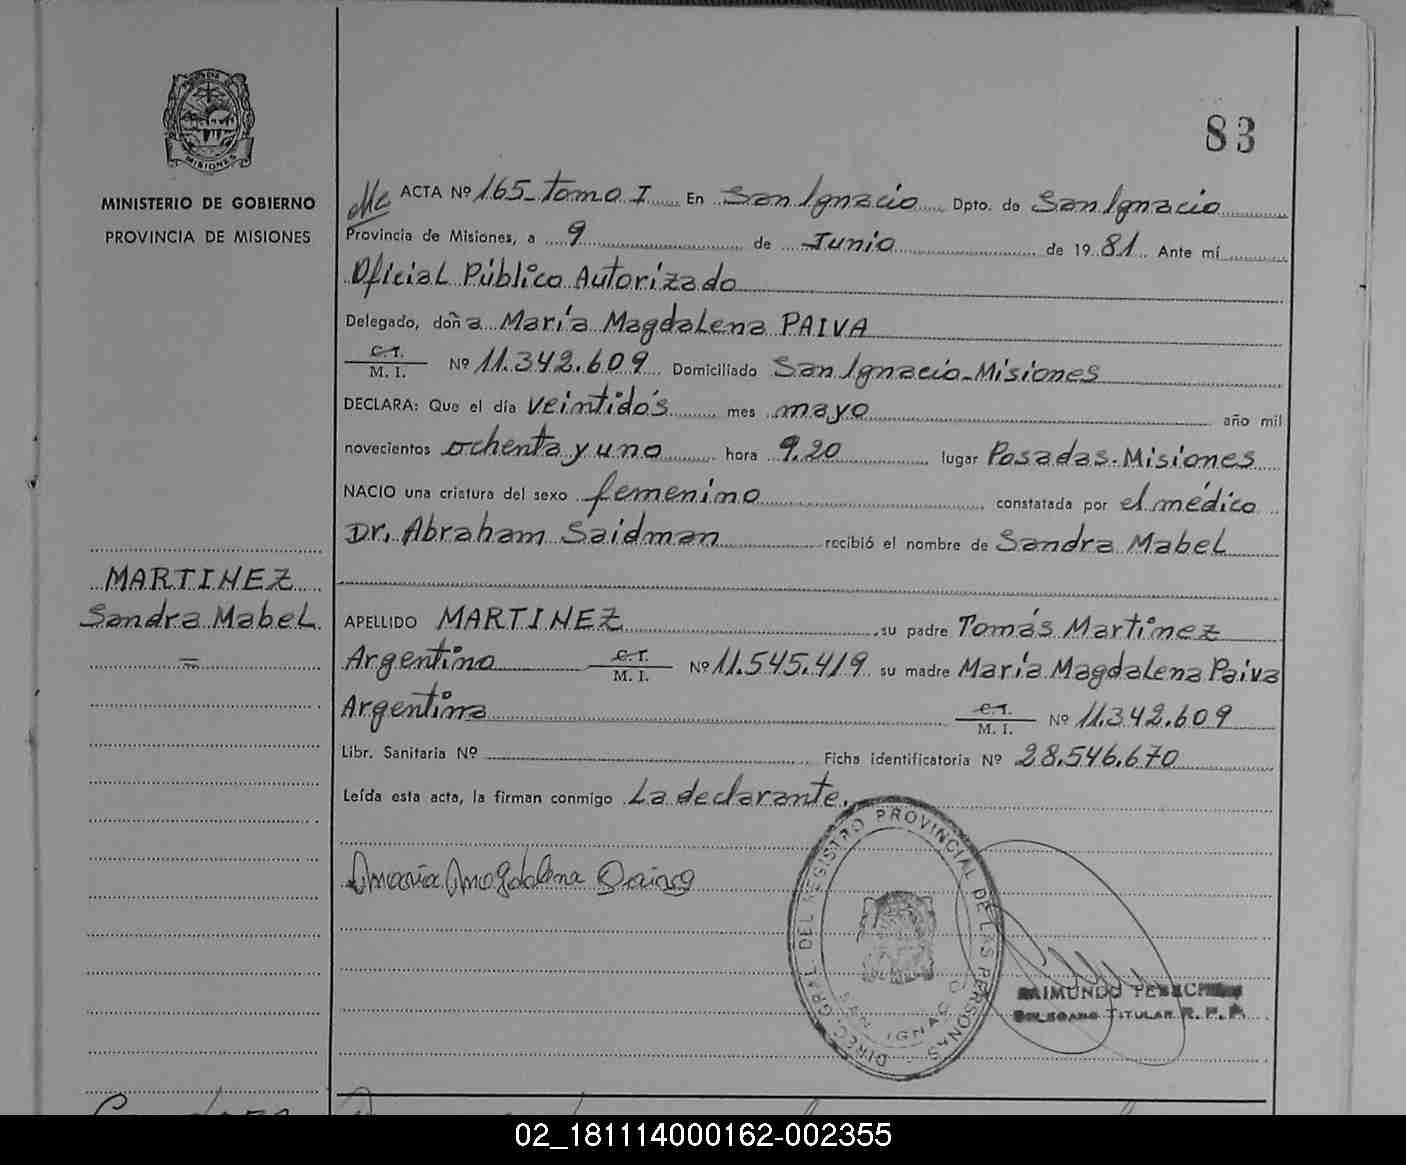 83
MISIONES
MINISTERIO DE GOBIERNO
PROVINCIA DE MISIONES
ACTA Nº 165 - tomo I En San Ignacio Dpto. de San Ignacio
Provincia de Misiones, a 9 de Junio de 1981 Ante mí
Oficial Público Autorizado
Delegado, doña María Magdalena PAIVA
C.I.
M. I. Nº 11.342.609 Domiciliado San Ignacio - Misiones
DECLARA: Que el día veintidós mes mayo año mil
novecientos ochenta y uno hora 9.20 lugar Posadas - Misiones
NACIO una criatura del sexo femenino constatada por el médico
Dr. Abraham Saidman recibió el nombre de Sandra Mabel
MARTINEZ
Sandra Mabel
=
APELLIDO MARTINEZ, su padre Tomás Martinez
Argentino C.I.
M. I. Nº 11.545.419 su madre María Magdalena Paiva
Argentina C.I.
M. I. Nº 11.342.609
Libr. Sanitaria Nº Ficha identificatoria Nº 28.546.670
Leída esta acta, la firman conmigo La declarante.
María Magdalena Paiva
DIREC. GRAL DEL REGISTRO PROVINCIAL DE LAS PERSONAS
SAN IGNACIO
RAIMUNDO
DELEGADO TITULAR R. P. P.
02_181114000162-002355